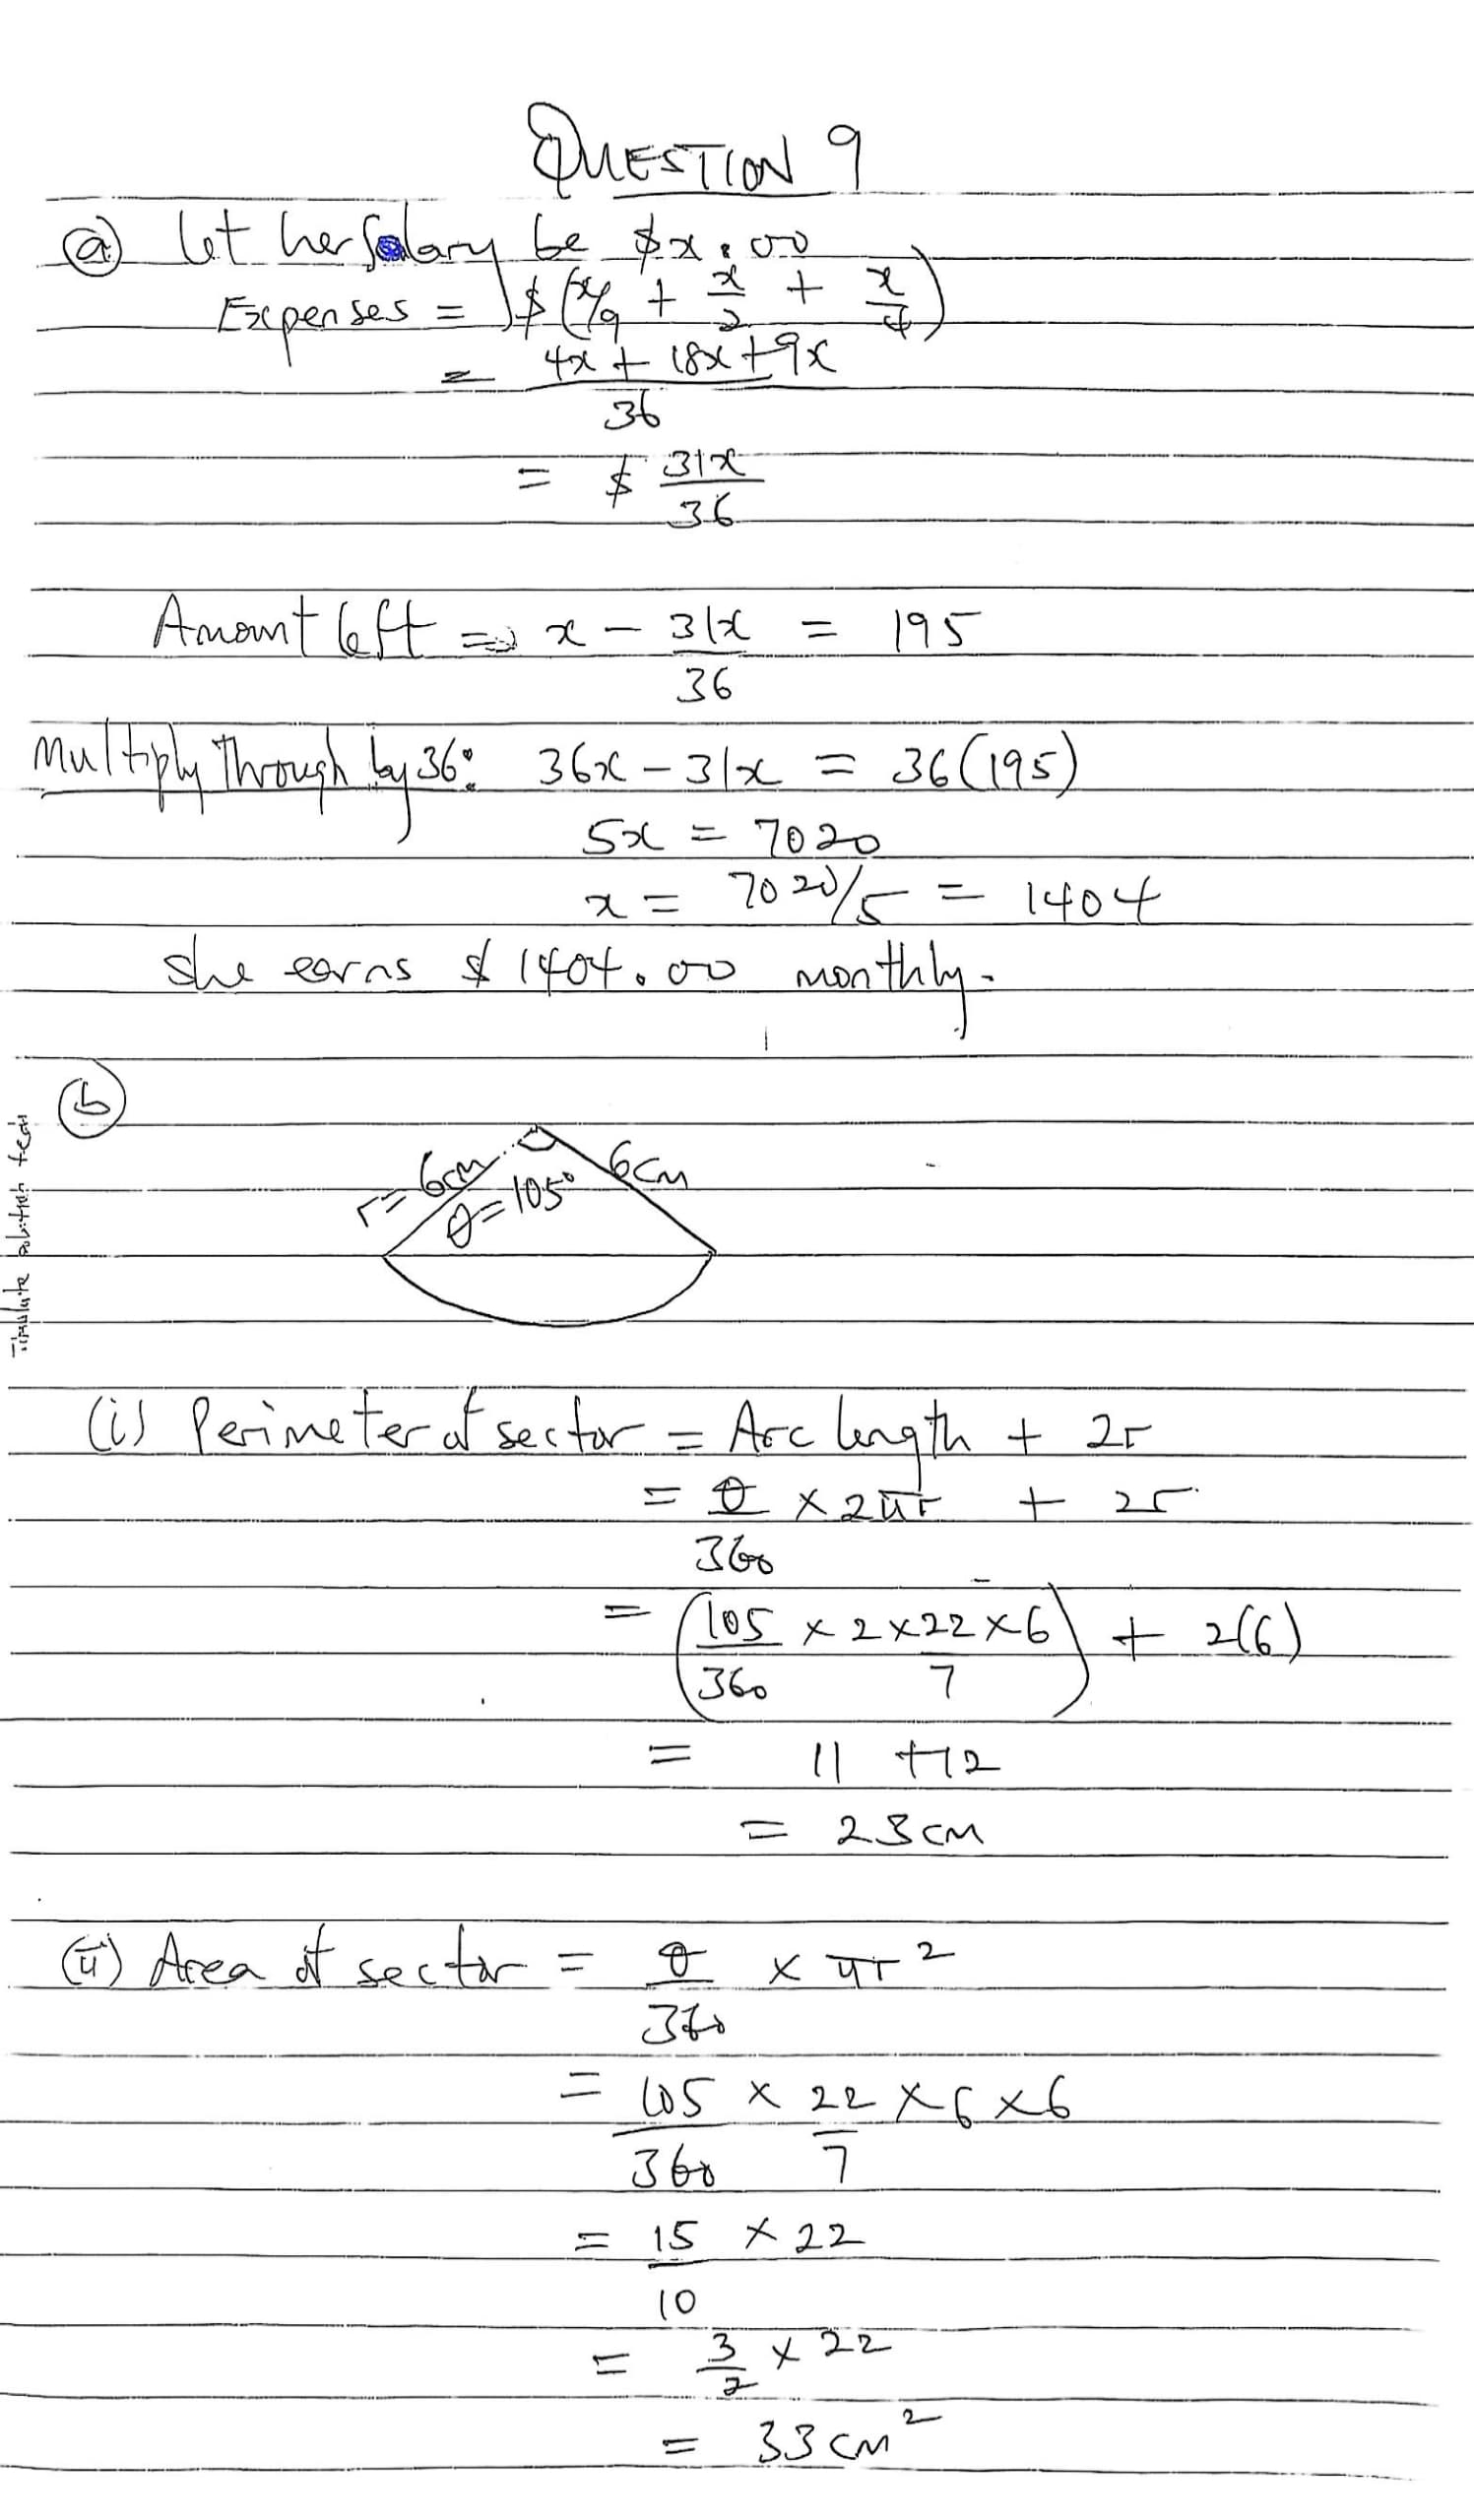 QUESTION 9
(a) Let her Salary be $x.00
Expenses = $(x/9 + x/2 + x/4)
= 4x + 18x + 9x
36
= $ 31x
36
Amount left => x - 31x = 195
36
Multiply through by 36: 36x - 31x = 36(195)
5x = 7020
x = 7020/5 = 1404
She earns $1404.00 monthly.
(b)
r = 6cm
6cm
θ = 105°
(i) Perimeter of sector = Arc length + 2r
= θ × 2πr + 2r
360
= (105 × 2 × 22 × 6) + 2(6)
360 7
= 11 + 12
= 23cm
(ii) Area of sector = θ × πr²
360
= 105 × 22 × 6 × 6
360 7
= 15 × 22
10
= 3/2 × 22
= 33cm²